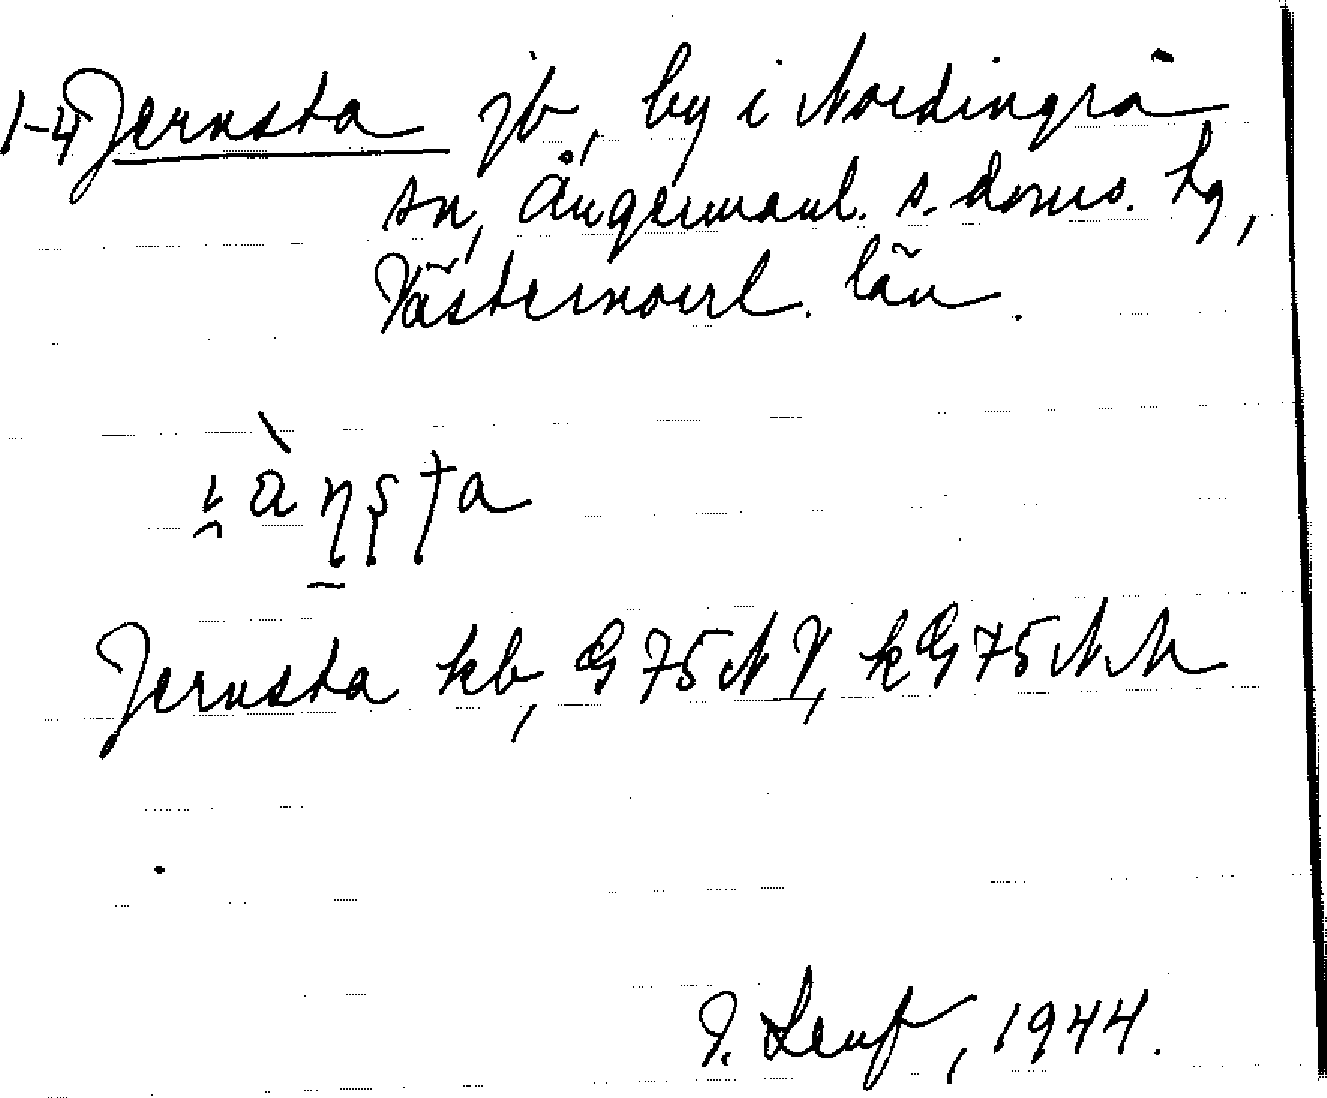 1-4 Jernsta jb, by i Nordingrå
sn, Ångermanl. s. doms. hg,
Västernorrl. län.
Jernsta kb, G 75 NV, k G 75 NN
I. Leuf, 1944.